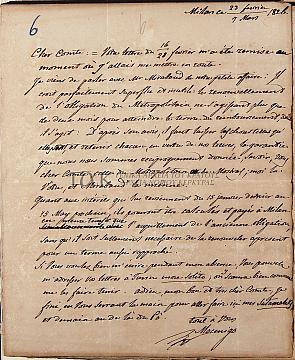 6
Milan ce 23 février / 7 Mars 1826.
Cher Comte = Votre lettre du 16/28 février m'a été remise au
moment où j'allais me mettre en route.
Je viens de parler avec Mr de notre petite affaire. Il
croit parfaitement superflu et inutile le renouvellement
de l'obligation du Métropolitain ne s'agissant plus que
de deux mois pour attendre le terme du remboursement
dont il s'agit: D'après son avis, il faut laisser les choses telles qu'
elles sont et retenir chacun, en vertu de nos lettres, la garantie
que nous nous sommes réciproquement donnée, savoir, vous,
cher Comte, du Métropolitain moi la
Vôtre, et la mienne.
Quant aux intérêts qui vous reviennent du 15 janvier dernier au
13 May prochain, ils pourront être calculés et payés à Milan
en même temps que
l'acquittement de l'ancienne obligation
sans qu'il soit nullement nécessaire de la renouveler
pour un terme aussi rapproché.
Si vous voulez bien m'écrire pendant mon absence vous pouvez
m'adresser vos lettres à on saura bien comment
me les faire tenir. Adieu, mon bon et cher Comte, je
finis en vous serrant la main pour aller faire
et demain au de là du Pô.
tout à Vous
Mocenigo